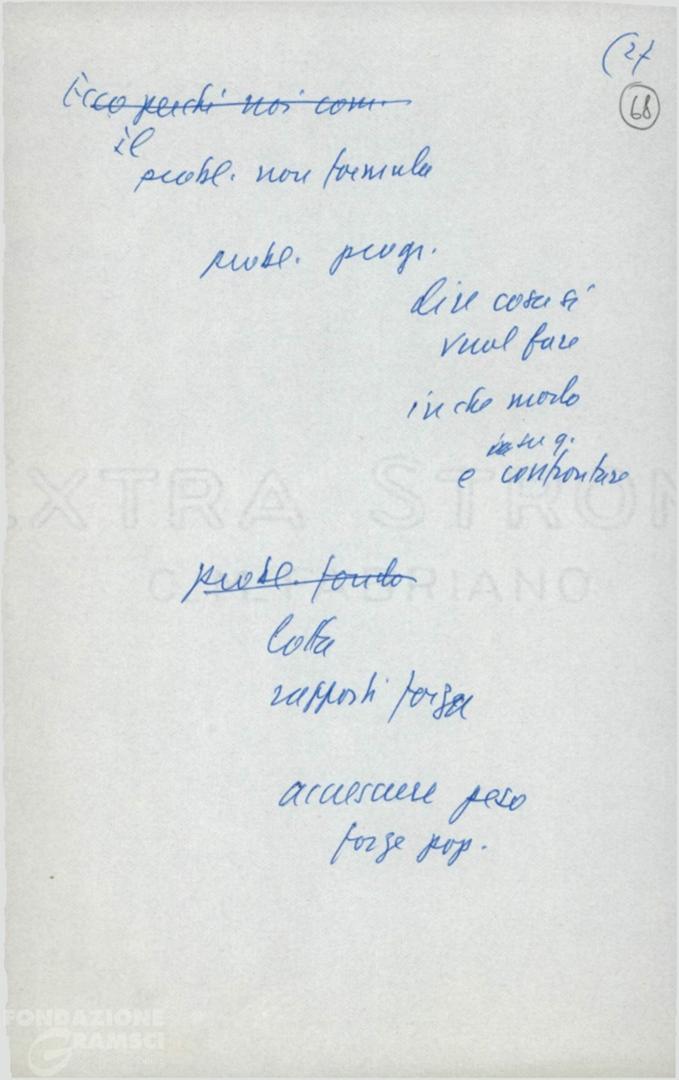 (2)
68
Ecco perché noi com.
il
probl. non formula
probl. progr.
dire cosa si
vuol fare
in che modo
e confrontare
EXTRA STRON
FABRIANO
probl. fondo
lotta
rapporti forza
accrescere peso
forze pop.
FONDAZIONE
GRAMSCI